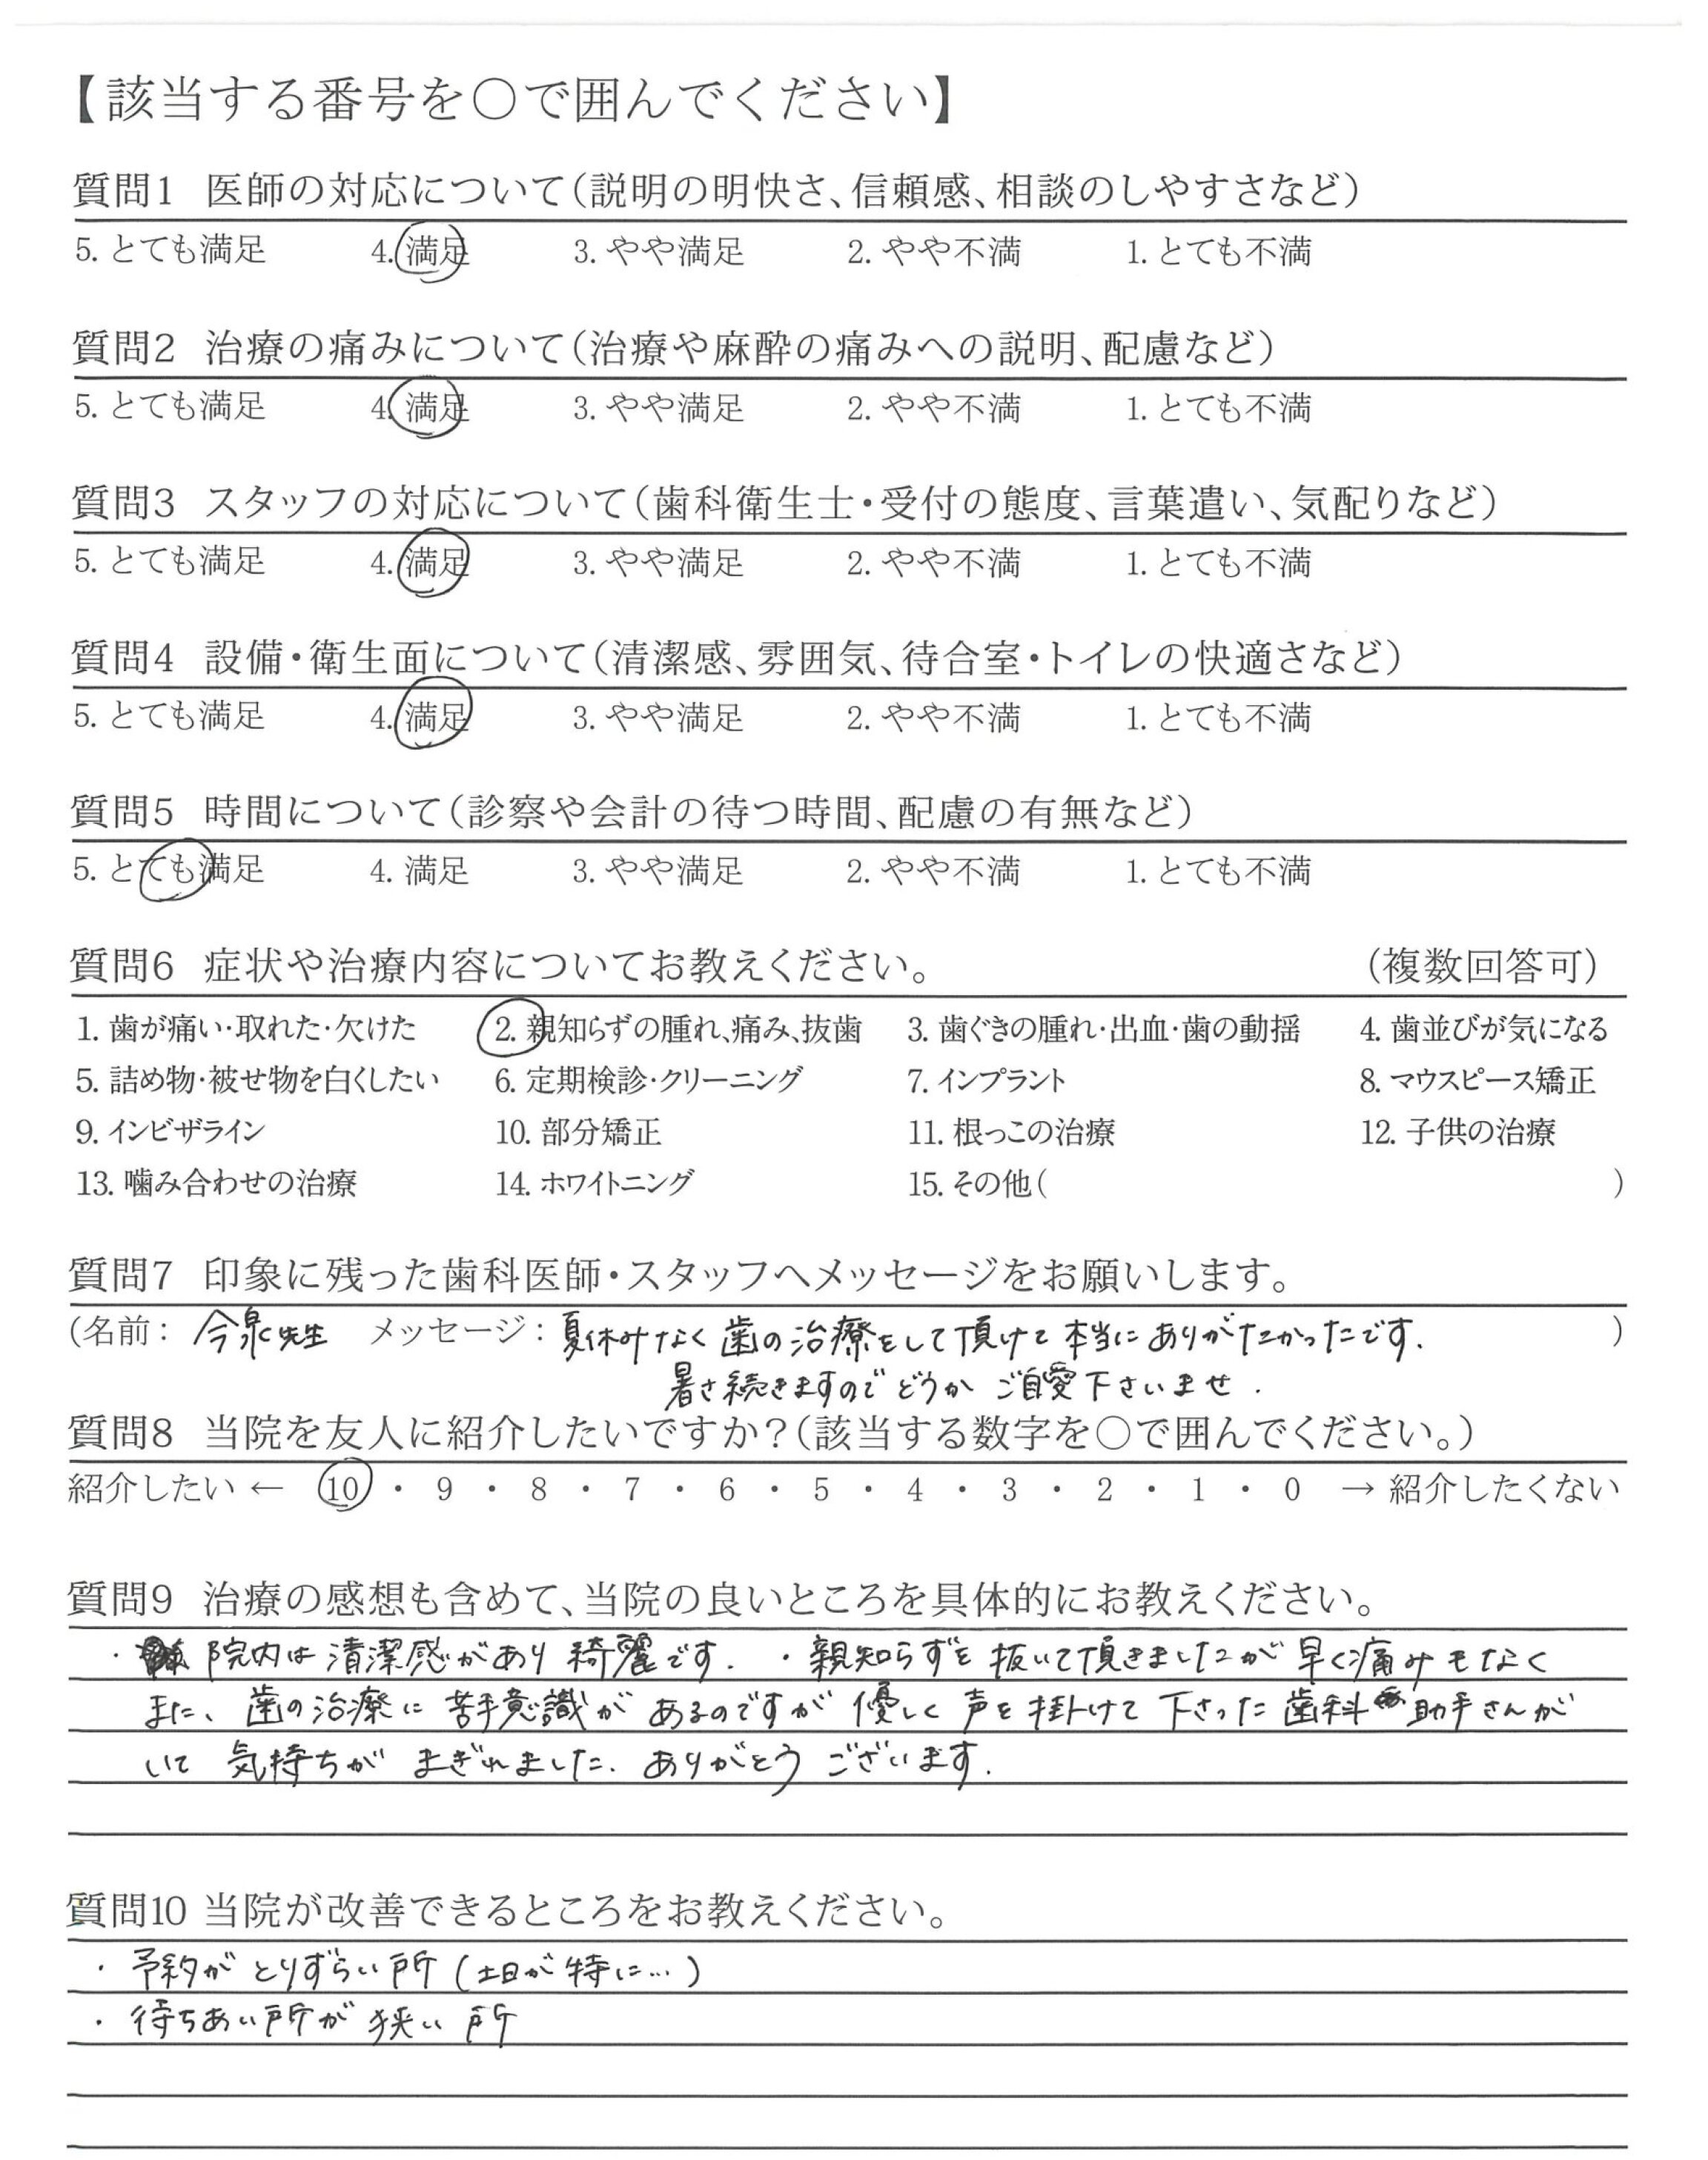 【該当する番号を〇で囲んでください】
質問1 医師の対応について(説明の明快さ、信頼感、相談のしやすさなど)
5. とても満足 4. 満足 3. やや満足 2. やや不満 1. とても不満
質問2 治療の痛みについて(治療や麻酔の痛みへの説明、配慮など)
5. とても満足 4. 満足 3. やや満足 2. やや不満 1. とても不満
質問3 スタッフの対応について(歯科衛生士・受付の態度、言葉遣い、気配りなど)
5. とても満足 4. 満足 3. やや満足 2. やや不満 1. とても不満
質問4 設備・衛生面について(清潔感、雰囲気、待合室・トイレの快適さなど)
5. とても満足 4. 満足 3. やや満足 2. やや不満 1. とても不満
質問5 時間について(診察や会計の待つ時間、配慮の有無など)
5. とても満足 4. 満足 3. やや満足 2. やや不満 1. とても不満
質問6 症状や治療内容についてお教えください。 (複数回答可)
1. 歯が痛い・取れた・欠けた 2. 親知らずの腫れ、痛み、抜歯 3. 歯ぐきの腫れ・出血・歯の動揺 4. 歯並びが気になる
5. 詰め物・被せ物を白くしたい 6. 定期検診・クリーニング 7. インプラント 8. マウスピース矯正
9. インビザライン 10. 部分矯正 11. 根っこの治療 12. 子供の治療
13. 噛み合わせの治療 14. ホワイトニング 15. その他( )
質問7 印象に残った歯科医師・スタッフへメッセージをお願いします。
(名前: 今泉先生 メッセージ: 夏休みなく歯の治療をして頂けて本当にありがたかったです. )
暑さ続きますのでどうか ご自愛下さいませ.
質問8 当院を友人に紹介したいですか?(該当する数字を〇で囲んでください。)
紹介したい ← 10 ・ 9 ・ 8 ・ 7 ・ 6 ・ 5 ・ 4 ・ 3 ・ 2 ・ 1 ・ 0 → 紹介したくない
質問9 治療の感想も含めて、当院の良いところを具体的にお教えください。
・院内は清潔感があり綺麗です. ・親知らずを抜いて頂きましたが早く痛みもなく
また、歯の治療に苦手意識があるのですが優しく声を掛けて下さった歯科助手さんが
いて気持ちがまぎれました. ありがとうございます.
質問10 当院が改善できるところをお教えください。
・予約がとりずらい所(土日が特に…)
・待ちあい所が狭い所